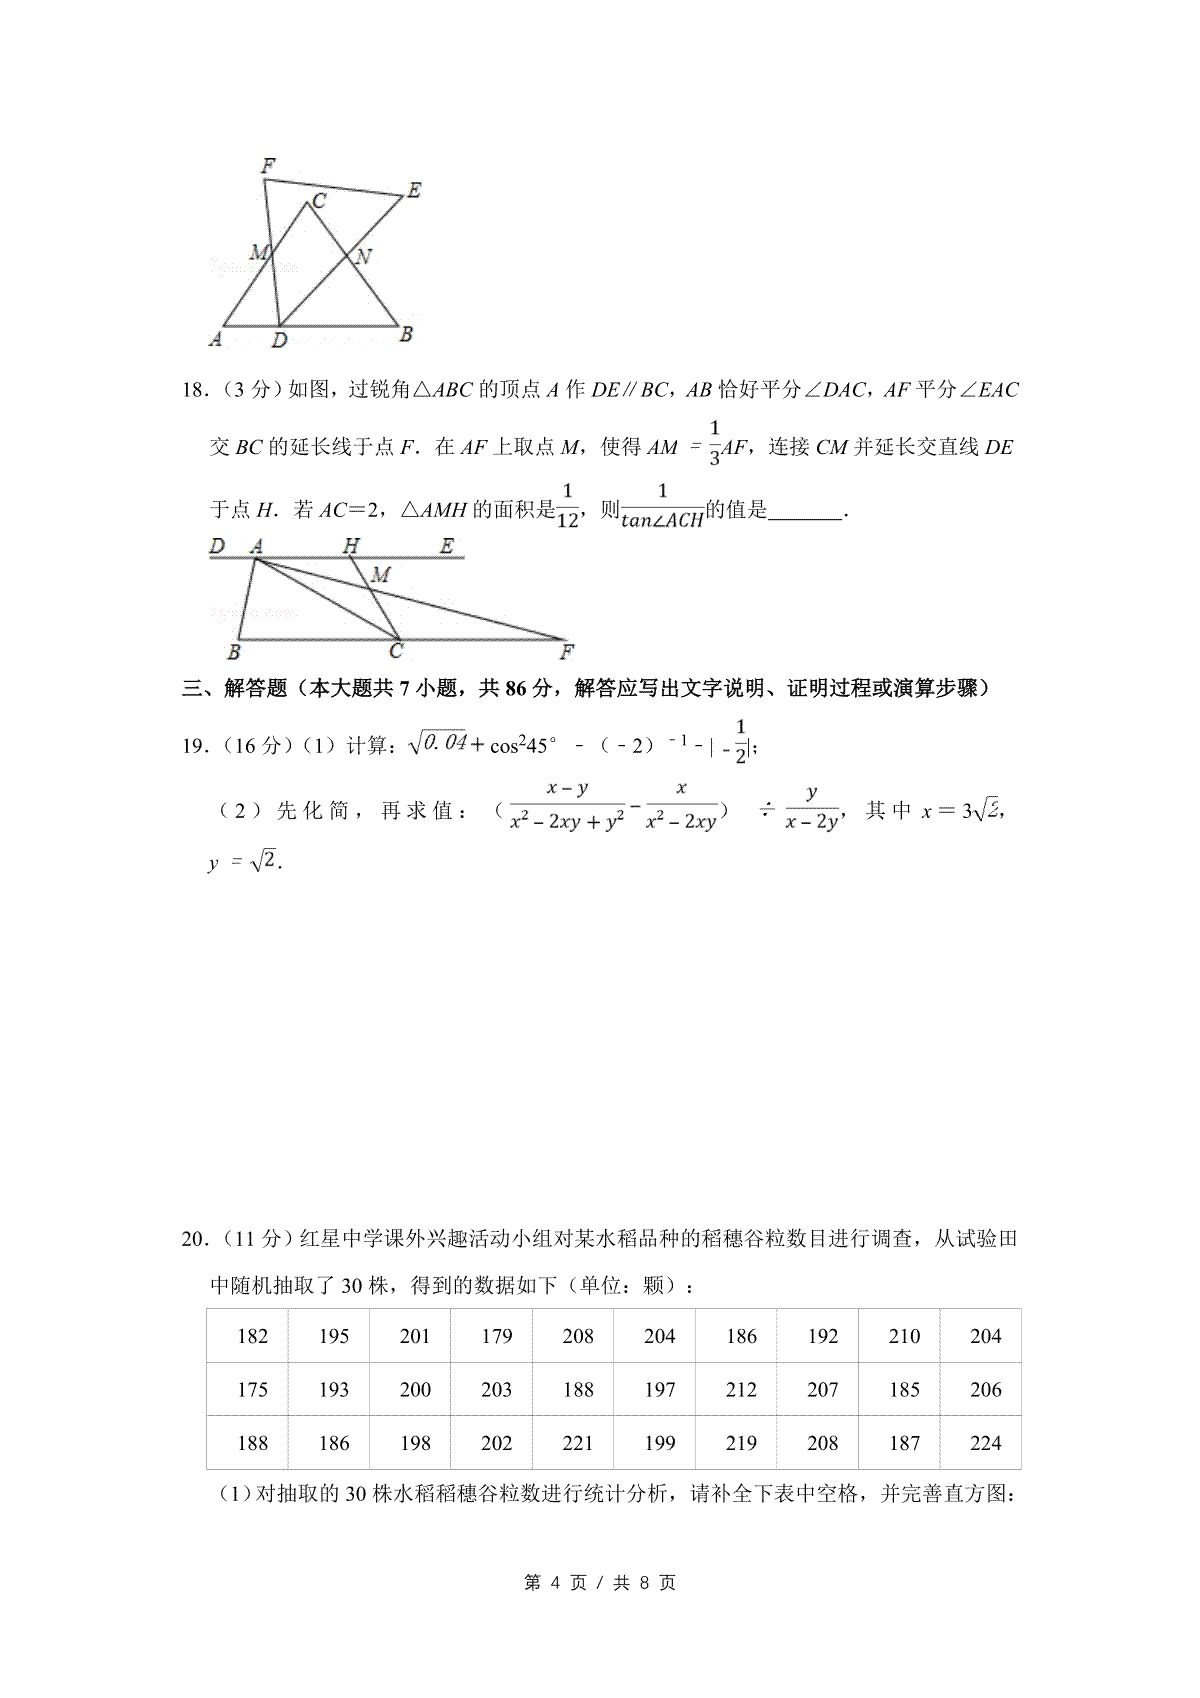 F
C
E
M
N
A
D
B
18．（3分）如图，过锐角△ABC的顶点A作DE∥BC，AB恰好平分∠DAC，AF平分∠EAC
交BC的延长线于点F．在AF上取点M，使得AM = 1/3 AF，连接CM并延长交直线DE
于点H．若AC＝2，△AMH的面积是 1/12，则 1/tan∠ACH 的值是______．
D A H E
M
B C F
三、解答题（本大题共7小题，共86分，解答应写出文字说明、证明过程或演算步骤）
19．（16分）（1）计算：√0.04 + cos²45°﹣（﹣2）﹣1﹣|﹣1/2|；
（2）先化简，再求值：（(x﹣y)/(x²﹣2xy+y²) ﹣ x/(x²﹣2xy)） ÷ y/(x﹣2y)，其中 x＝3√2，
y = √2．
20．（11分）红星中学课外兴趣活动小组对某水稻品种的稻穗谷粒数目进行调查，从试验田
中随机抽取了30株，得到的数据如下（单位：颗）：
182 195 201 179 208 204 186 192 210 204
175 193 200 203 188 197 212 207 185 206
188 186 198 202 221 199 219 208 187 224
（1）对抽取的30株水稻稻穗谷粒数进行统计分析，请补全下表中空格，并完善直方图：
第 4 页 / 共 8 页